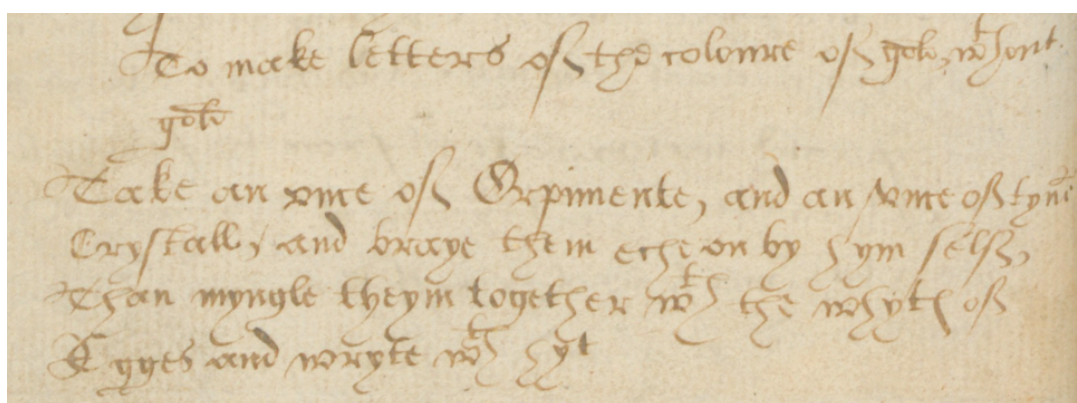 To make letters off the coloure off gold, wth out
gold
Take an vnce off Orpimente, and an vnce off fyne
Crystall, and braye them eche on by hym selff,
Than myngle theym together wth the whyth off
Egges and wryte wth hyt